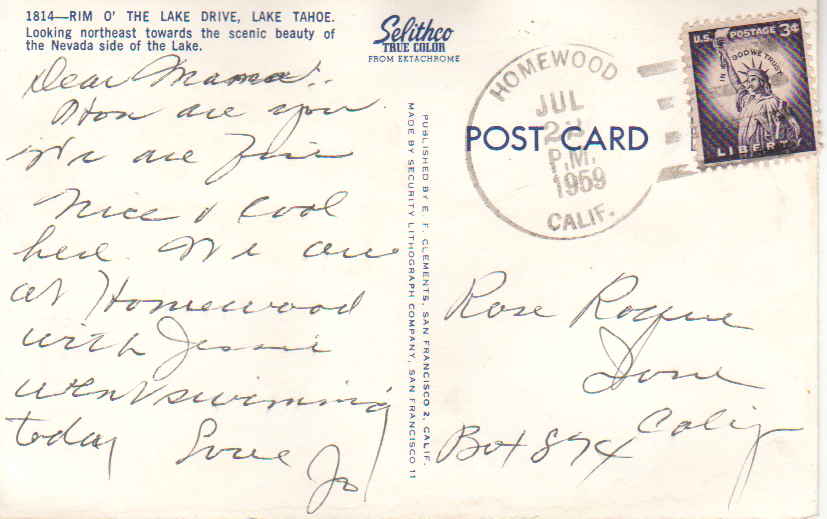 1814—RIM O' THE LAKE DRIVE, LAKE TAHOE.
Looking northeast towards the scenic beauty of
the Nevada side of the Lake.
Selithco
TRUE COLOR
FROM EKTACHROME
Dear Mama:
How are you
We are fine
Nice & Cool
here. We are
at Homewood
with Jessie
went swimming
today Love Jo
PUBLISHED BY E. F. CLEMENTS, SAN FRANCISCO 2, CALIF.
MADE BY SECURITY LITHOGRAPH COMPANY, SAN FRANCISCO 11
POST CARD
HOMEWOOD
JUL
P.M.
1959
CALIF.
U.S. POSTAGE 3¢
IN GOD WE TRUST
LIBERTY
Rose
Ione
Calif
Box 874